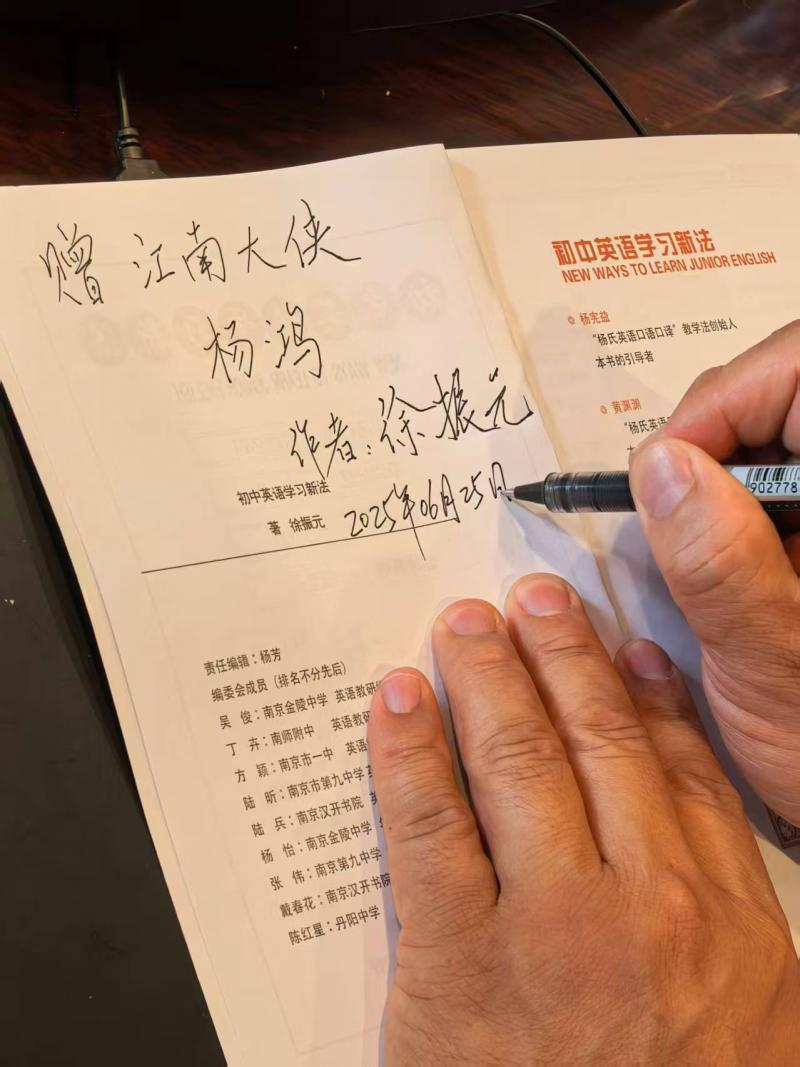 赠 江南大侠
杨鸿
作者：徐振元
2025年06月25日
初中英语学习新法
著 徐振元
责任编辑：杨芳
编委会成员（排名不分先后）
吴 俊：南京金陵中学 英语教研
丁 卉：南师附中 英语教研
方 颖：南京市一中 英语
陆 昕：南京市第九中学
陆 兵：南京汉开书院
杨 怡：南京金陵中学
张 伟：南京第九中学
戴春花：南京汉开书院
陈红星：丹阳中学
初中英语学习新法
NEW WAYS TO LEARN JUNIOR ENGLISH
杨宪益
“杨氏英语口语口译”教学法创始人
本书的引导者
黄渊渊
“杨氏英语
902778